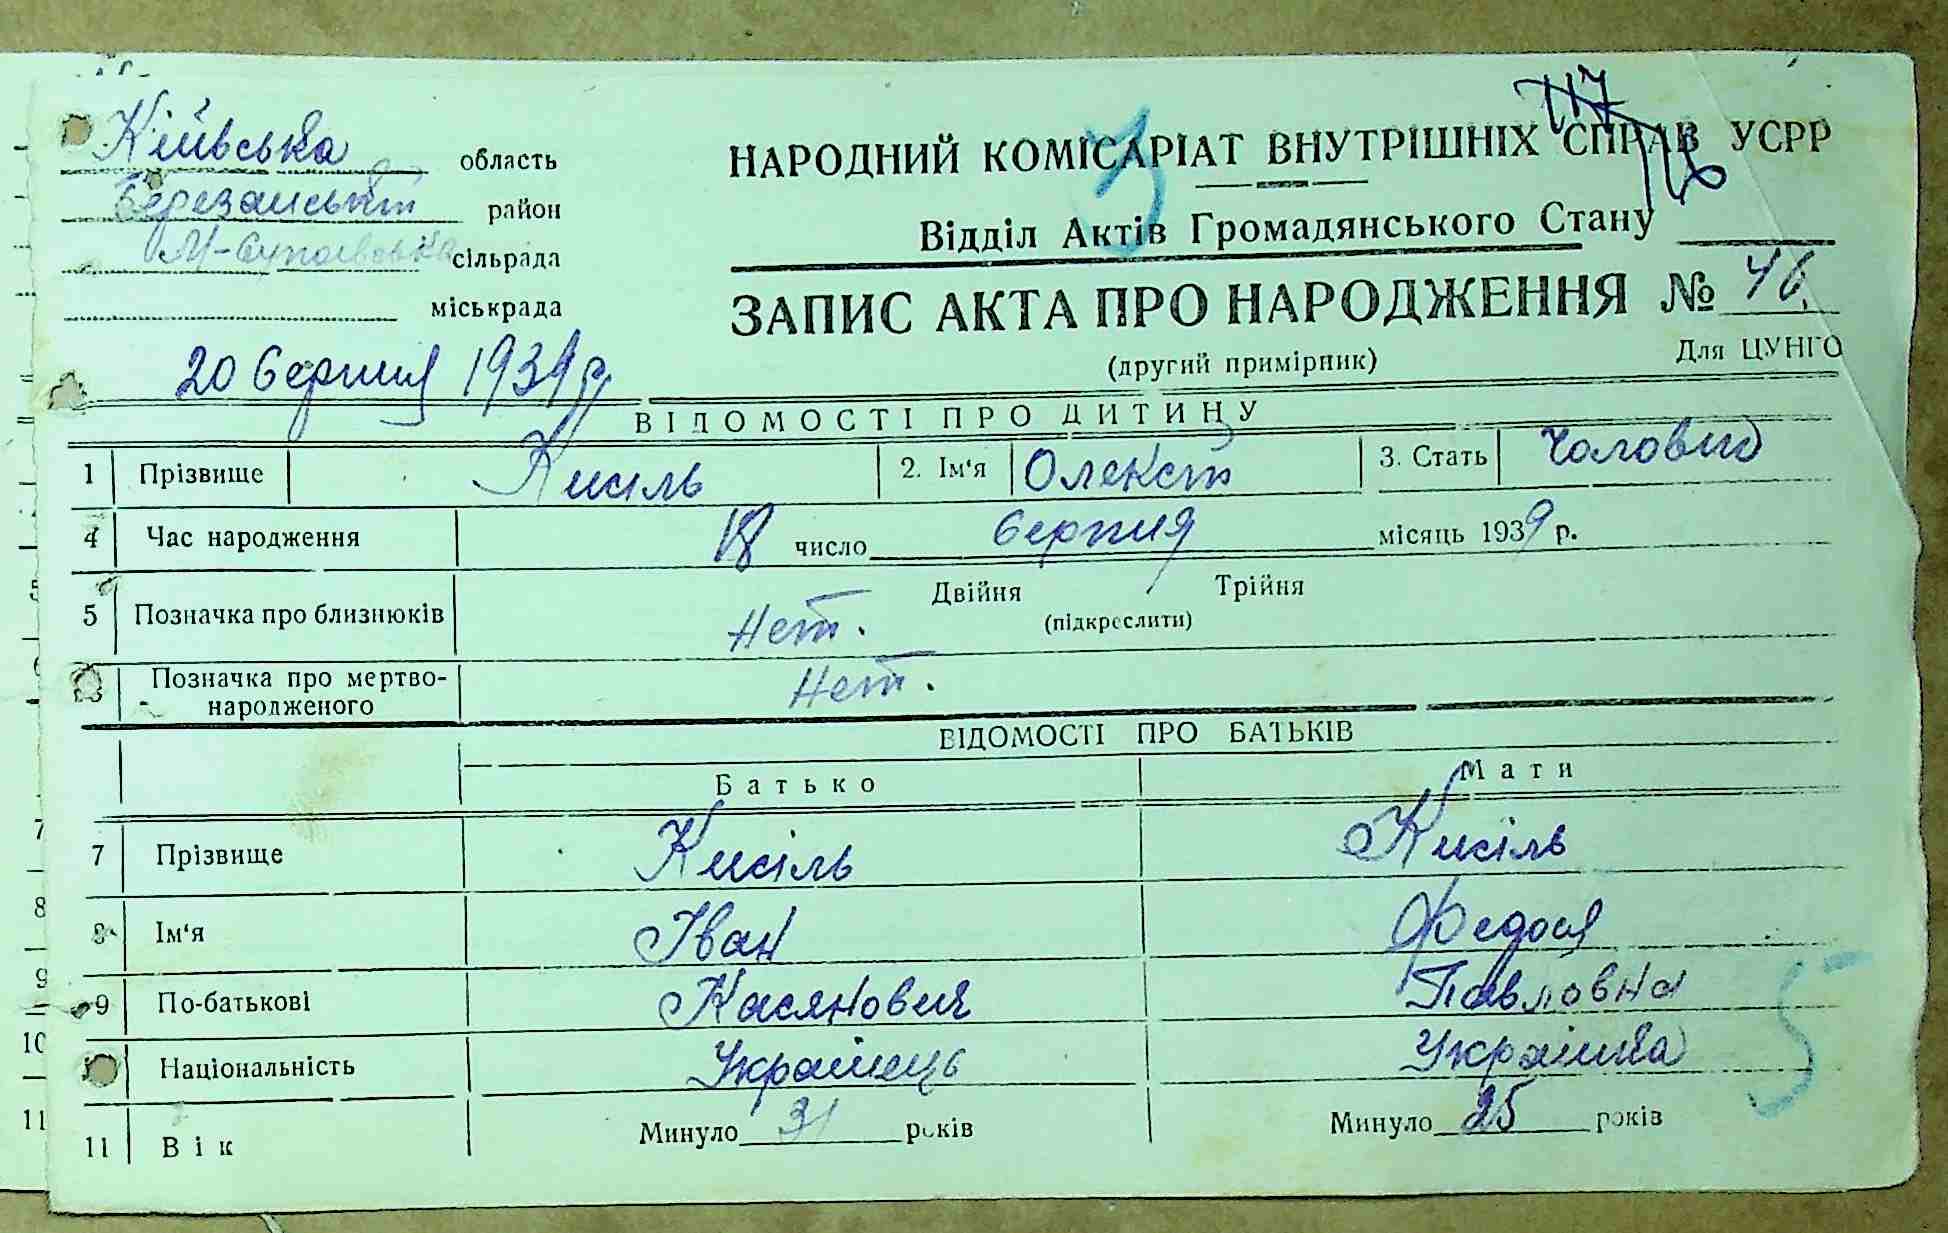 Київська область
Березанський район
М-Супоївська сільрада
міськрада
117
НАРОДНИЙ КОМІСАРІАТ ВНУТРІШНІХ СПРАВ УСРР
Відділ Актів Громадянського Стану
ЗАПИС АКТА ПРО НАРОДЖЕННЯ № 46
(другий примірник)
Для ЦУНГО
20 серпня 1939 р
ВІДОМОСТІ ПРО ДИТИНУ
1 Прізвище Кисіль 2. Ім'я Олексій 3. Стать
4 Час народження 18 число серпня місяць 1939 р.
5 Позначка про близнюків Нет. Двійня Трійня
(підкреслити)
Позначка про мертво-
народженого Нет.
ВІДОМОСТІ ПРО БАТЬКІВ
Батько Мати
7 Прізвище Кисіль Кисіль
8 Ім'я Іван Федося
9 По-батькові Касянович Павловна
Національність Українець Українка
11 Вік Минуло 31 років Минуло 25 років
5
7
8
9
10
11